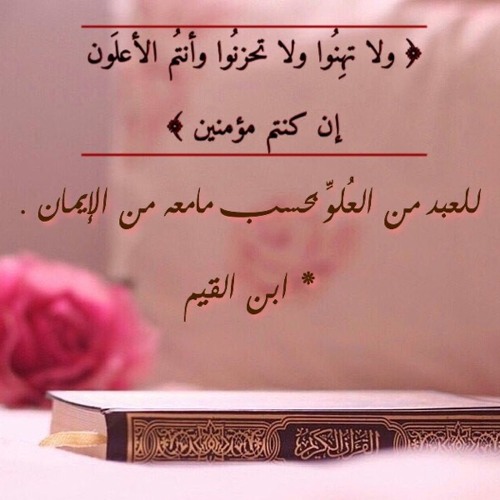 ﴿ ولا تهِنُوا ولا تحزنُوا وأنتُم الأعلَون
إن كنتم مؤمنين ﴾
للعبد من العُلوِّ بحسب مامعه من الإيمان .
* ابن القيم
القرآن الكريم